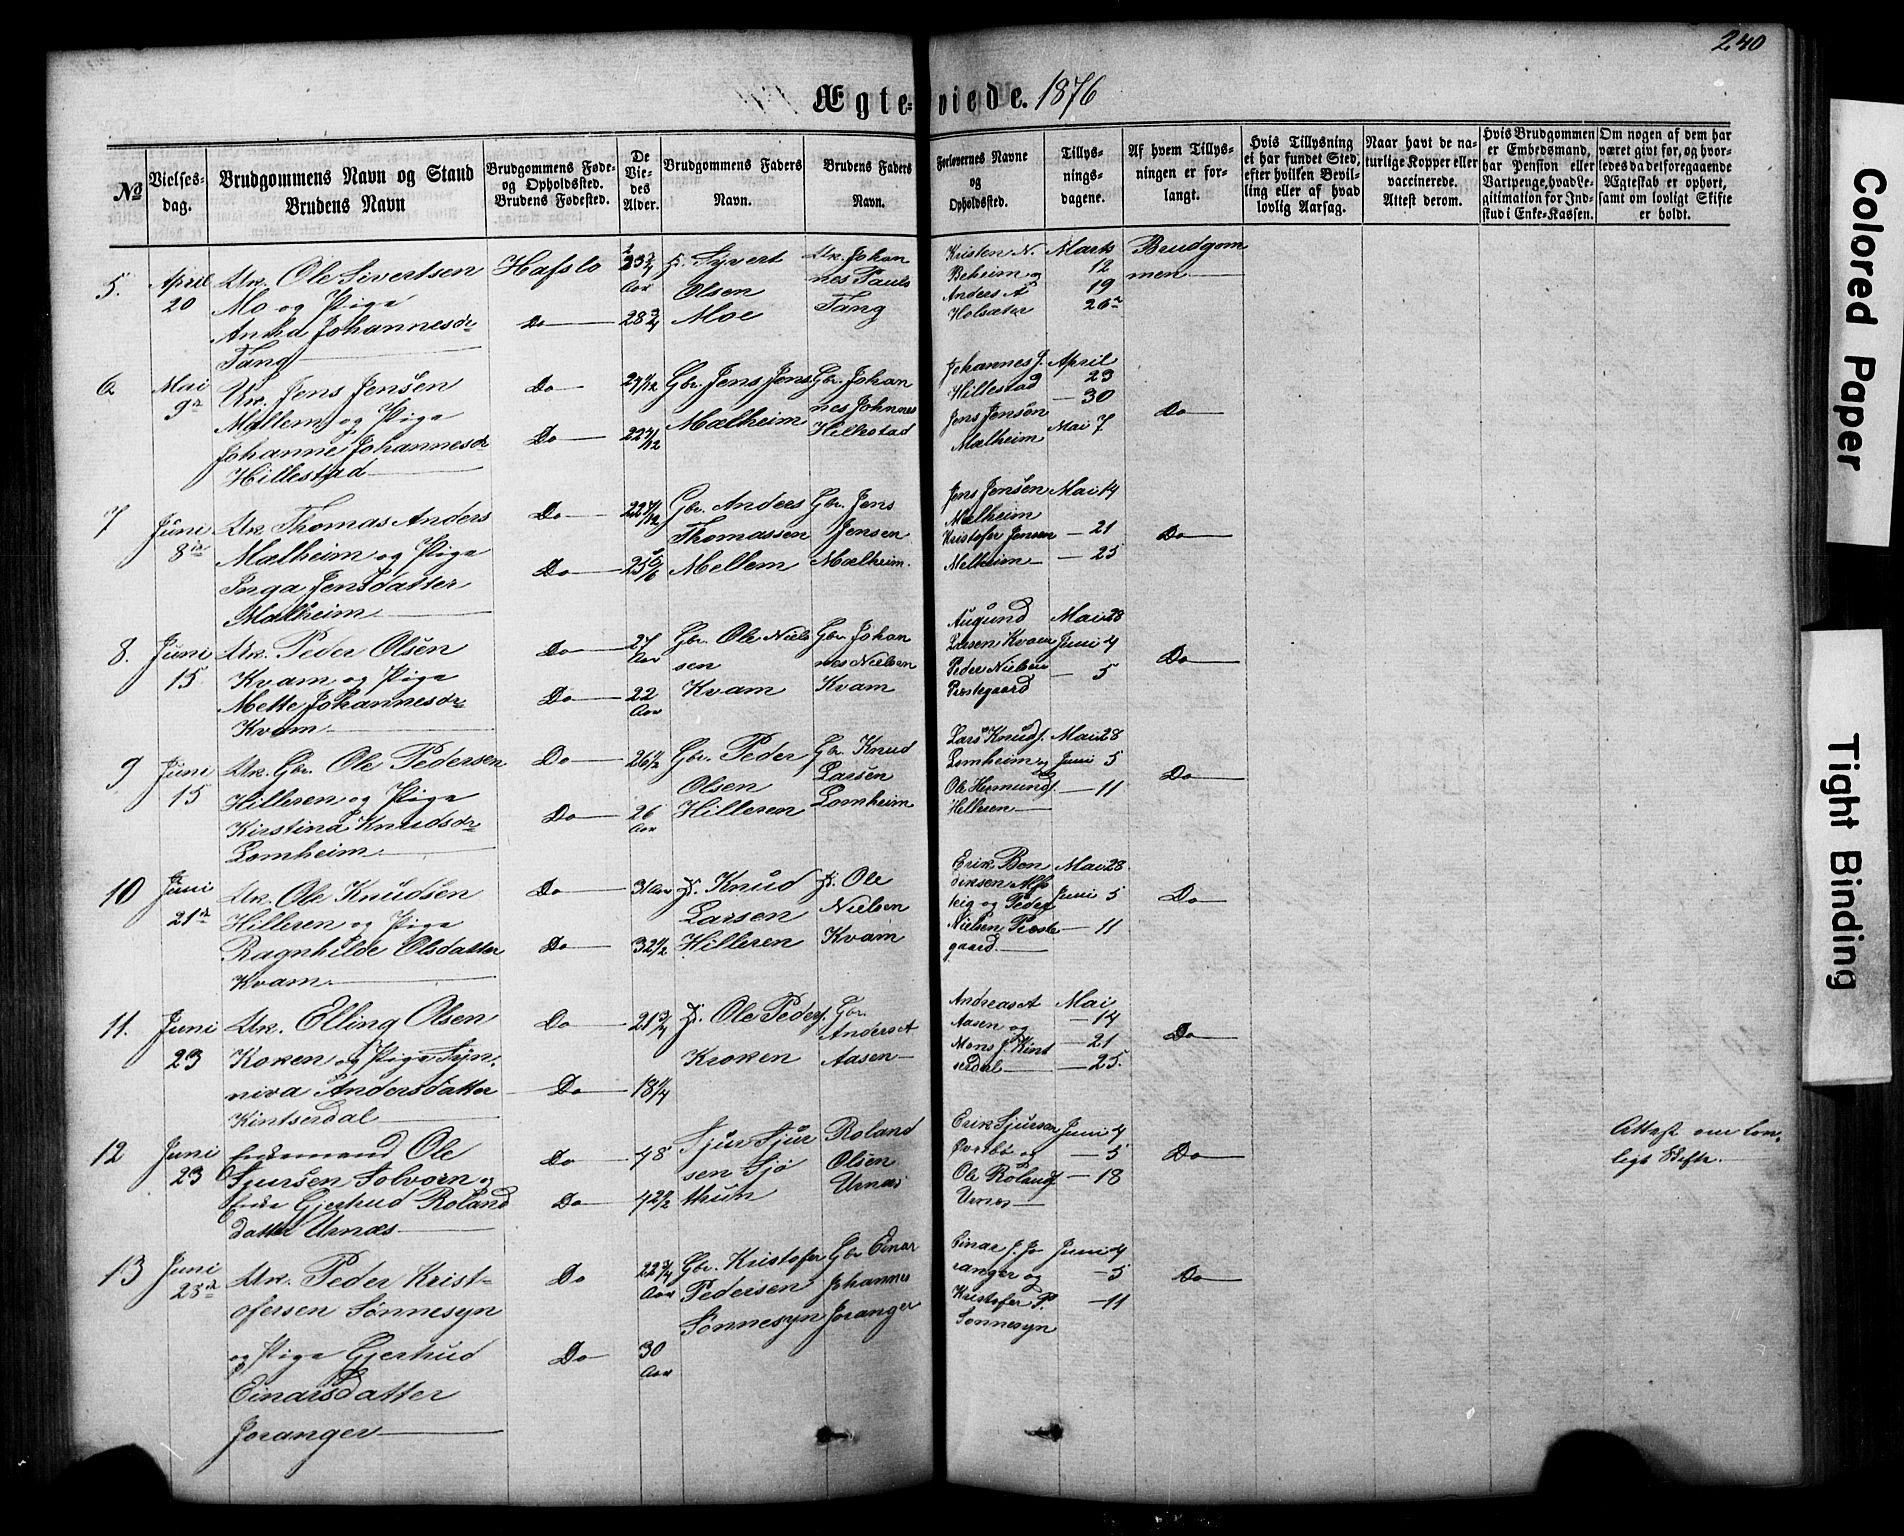 240
Ægteviede. 1876
No
Vielses-
dag.
Brudgommens Navn og Stand
Brudens Navn
Brudgommens Føde-
og Opholdssted.
Brudens Fødested.
De
Vie-
des
Alder.
Brudgommens Faders
Navn.
Brudens Faders
Navn.
Forlovernes Navne
og
Opholdssted.
Tillys-
nings-
dagene.
Af hvem Tillys-
ningen er for-
langt.
Hvis Tillysning
ei har fundet Sted,
efter hvilken Bevil-
ling eller af hvad
lovlig Aarsag.
Naar havt de na-
turlige Kopper eller
vaccinerede.
Attest derom.
Hvis Brudgommen
er Embedsmand,
har Pension eller
Vartpenge, hvad Le-
gitimation for Ind-
skud i Enke-Kassen.
Om nogen af dem har
været givt før, og hvor-
ledes da det foregaaende
Ægteskab er ophørt,
samt om lovligt Skifte
er holdt.
5.
April
20
Uk. Ole Sivertsen
Mo og Pige
Anna Johannesdr
Tang
Hafslo
Do
Aar
28 3/4
Syvert
Olsen
Moe
Uk. Johan
nes Pauls
Tang
Kristen N.
Beheim og
Anders A
Holsæter
Marts
12
19
26
Brudgom
men
6
Mai
9
Uk. Jens Jensen
Mellem og Pige
Johanne Johannesdr
Hillestad
Do
Do
Gbr. Jens Jens
Mælheim
Gbr. Johan
nes Johnnes
Hillestad
Johannes J.
Hillestad
Jens Jensen
Mælheim
April
23
30
Mai 7
Do
7
Juni
8
Uk Thomas Anders
Mælheim og Pige
Inga Jensdatter
Mælheim
Do
Do
Gbr. Anders
Thomassen
Mellem
Gbr. Jens
Jensen
Mælheim.
Jens Jensen
Mælheim
Kristofer Jensen
Melheim
Mai 14
21
25
Do
8.
Juni
15
Uk. Peder Olsen
Kvam og Pige
Mette Johannesdr
Kvam
Do
Do
27
Aar
22
Aar
Gbr. Ole Niels
sen
Kvam
Gbr. Johan
nes Nielsen
Kvam
Augund
Larsen Kvam
Peder Nielsen
Præstegaard
Mai 28
Juni 4
5
Do
9
Juni
15
Uk. Gbr. Ole Pedersen
Hilleren og Pige
Kirstina Knudsdr
Lomheim
Do
Do
26 1/2
26
Aar
Gbr. Peder
Olsen
Hilleren
Gbr Knud
Larsen
Lomheim
Lars Knuds.
Lomheim og
Ole Hermunds.
Hilleren
Mai 28
Juni 5
11
Do
10
Juni
21
Uk. Ole Knudsen
Hilleren og Pige
Ragnhilde Olsdatter
Kvam
Do
Do
31 Aar
32 1/2
Knud
Larsen
Hilleren
Ole
Nielsen
Kvam
Erik Ben
diksen Alfs
og Peder
Nielsen Præste
gaard
Mai 28
Juni 5
11
Do
11.
Juni
23
Uk. Elling Olsen
Kroken og Pige Syn-
niva Andersdatter
Kintserdal
Do
Do
21 3/4
18 1/4
Ole Peders.
Kroken
Gbr.
Anders A
Aasen
Andreas A
Aasen og
Mons J. Kint
serdal
Mai
14
21
25
Do
12
Juni
23
Enkemand Ole
Sjursen Solvorn og
Enke Gjertrud Roland
datter Urnæs
Do
Do
48
42 1/2
Sjur Sjur
sen Sjø
thun
Roland
Olsen
Urnæs
Erik Sjursen
Øvrebø og
Ole Rolands
Urnes
Juni 4
5
18
Do
Attest om lov-
ligt Skifte
13
Juni
23
Uk. Peder Krist-
ofersen Sønnesyn
og Pige Gjertrud
Einarsdatter
Joranger
Do
Do
22 3/4
Aar
30
Aar
Gbr. Kristofer
Pedersen
Sønnesyn
Gbr Einar
Johannes
Joranger
Einar J. Jo
ranger og
Kristofer P.
Sønnesyn
Juni 4
5
11
Do
Colored Paper
Tight Binding